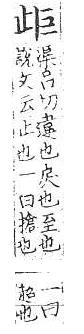 歫
渠呂切違也戾也至也
說文云止也一曰搶也
一曰
超也